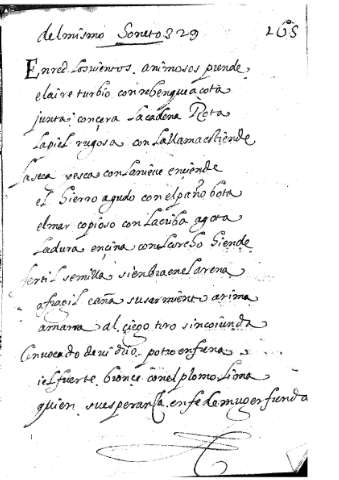 del mismo Soneto 329 165
En red los vientos animosos prende
el aire turbio con rebenque açota
junta con çera la cadena Rota
la piel rugosa con la llama estiende
la seca yesca con la nieve ençiende
el hierro agudo con el paño bota
el mar copioso con la criba agota
la dura ençina con la hiende
fertil semilla siembra en el arena
a fragil caña su sarmiento arima
amarra al çiego toro sin coiunda
Convocado de vidrio potro enfrena
i el fuerte bronçe con el plomo lima
quien su esperança en fe de muger funda